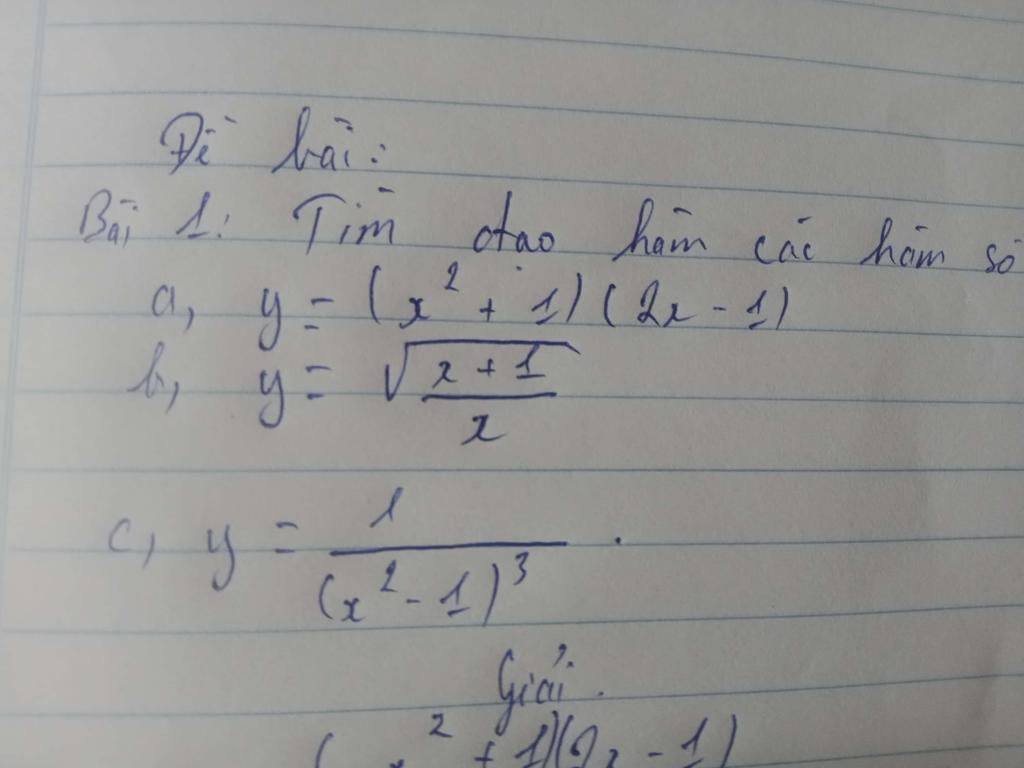 Đề bài:
Bài 1: Tìm đạo hàm các hàm số
a, y = (x² + 1)(2x - 1)
b, y = √(x + 1 / x)
c, y = 1 / (x² - 1)³ .
Giải.
(x² + 1)(2x - 1)